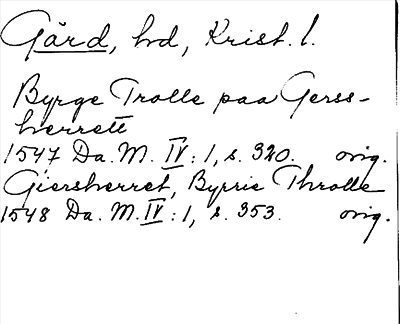 Gärd, hd, Krist. l.
Byrge Trolle paa Gerss-
herrett
1547 Da. M. IV: 1, s. 320. orig.
Giersherret, Byrrie Throlle
1548 Da. M. IV: 1, s. 353. orig.